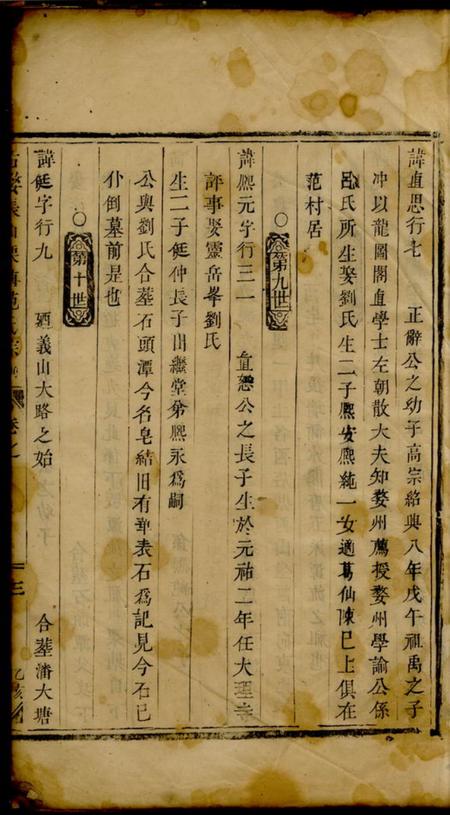 諱直思行七　正辭公之幼子高宗紹興八年戊午祖禹之子
冲以龍圖閣直學士左朝散大夫知婺州薦授婺州學諭公係
呂氏所生娶劉氏生二子熙安熙純一女適葛仙陳巳上俱在
范村居
○第九世
諱熙元字行三一　直恕公之長子生於元祐二年任大理寺
評事娶靈岳峯劉氏
生二子䢖仲長子出繼堂弟熙永爲嗣
公與劉氏合葬石頭潭今名皂結旧有華表石爲記見今石已
仆倒墓前是也
○第十世
諱䢖字行九　廼義山大路之始　合葬潘大塘
三
乙亥